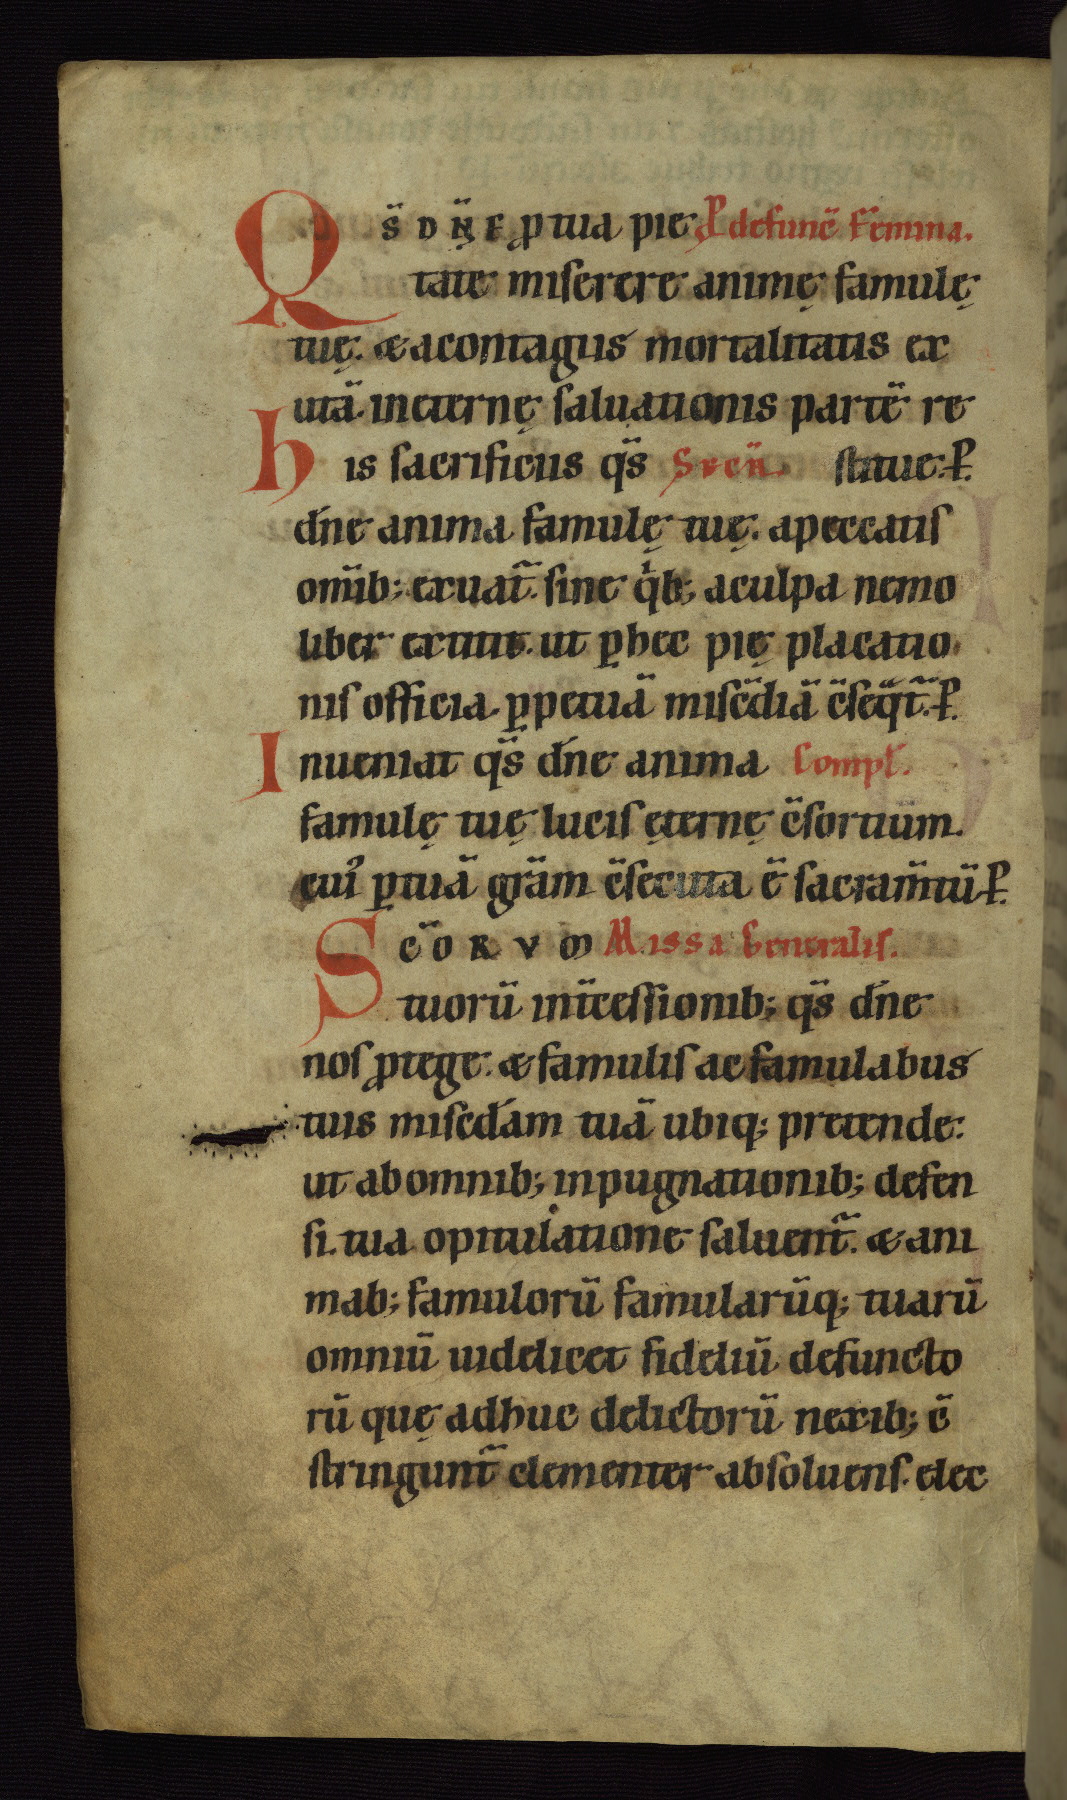 Q S̄ D N̄Ę F ꝓ tua pie P̄ defunc̄ Femina.
tate miserere animę famulę
tuę. & a contagiis mortalitatis ex
utā in eternę saluationis partē re
His sacrificiis q̄s Secr̄. stitue. P̱.
dn̄e anima famulę tuę. a peccatis
omīb; exuat᷑. sine qⁱb; a culpa nemo
liber extitit. ut ꝑ hec pię placatio
nis officia. ꝑpetuā misc̄diā c̄seq̄t᷑. P̱.
Inueniat q̄s dn̄e anima Compl̄.
famulę tuę lucis ęternę c̄sortium.
cui᷒ ꝑ tuā gr̄am c̄secuta ē sacram̄tū. P̱.
SC̄ORVM Missa Generalis.
tuorū int̄cessionib; q̄s dn̄e
nos ꝓtege. & famulis ac famulabus
tuis misc̄dam tuā ubiq; pretende.
ut ab omnib; inpugnationib; defen
si. tua opitulatione saluent᷑. & ani
mab; famulorū famularūq; tuarū
omniū uidelicet fideliū defuncto
rū quę adhuc delictorū nexib; c̄
stringunt᷑ clementer absoluens. elec